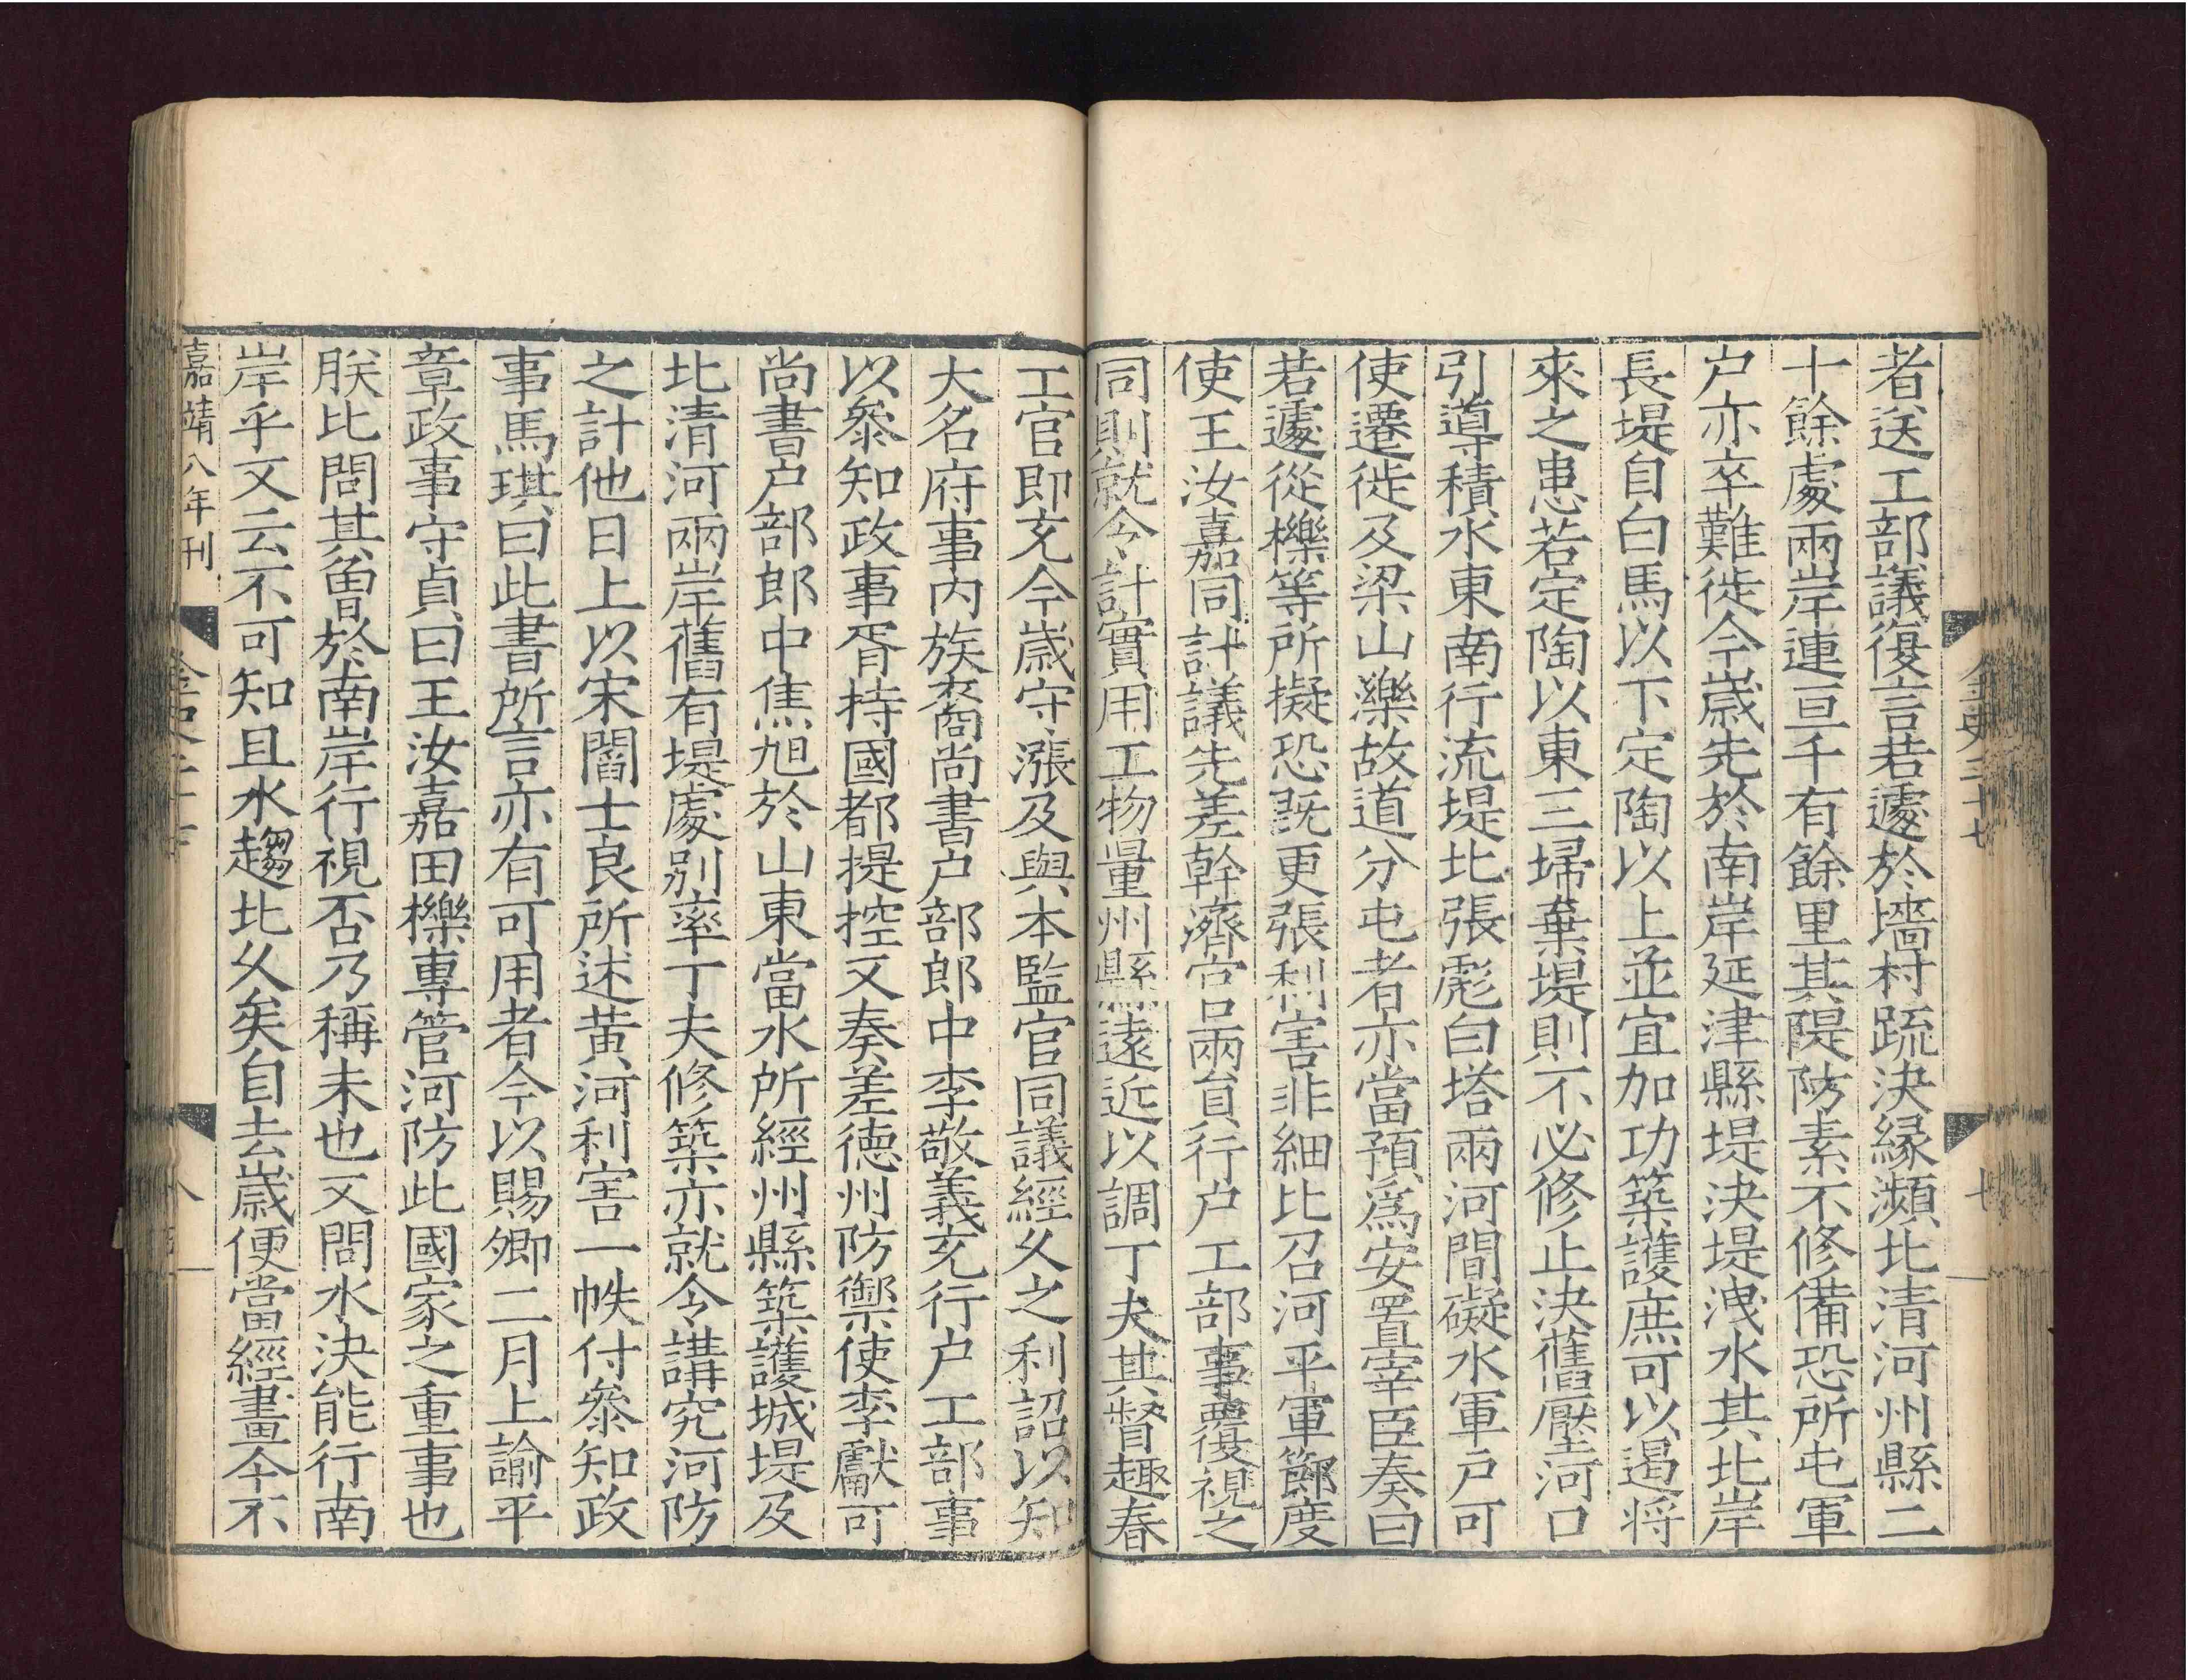 金史二十七
七
者送工部議復言若遽於墻村疏決緣瀕北清河州縣二
十餘處兩岸連亘千有餘里其隄防素不修備恐所屯軍
户亦卒難徙今歲先於南岸延津縣堤決堤洩水其北岸
長堤自白馬以下定陶以上並宜加功築護庶可以遏将
來之患若定陶以東三埽棄堤則不必修止決舊壓河口
引導積水東南行流堤北張彪白塔兩河間礙水軍户可
使遷徙及梁山濼故道分屯者亦當預為安置宰臣奏曰
若遽從櫟等所擬恐既更張利害非細比召河平軍節度
使王汝嘉同計議先差幹濟官兩員行户工部事覆視之
同則就令計實用工物量州縣遠近以調丁夫其督趣春
工官即充今歲守漲及與本監官同議經久之利詔以知
大名府事内族裔尚書户部郎中李敬義充行户工部事
以叅知政事胥持國都提控又奏差德州防禦使李獻可
尚書户部郎中焦旭於山東當水所經州縣築護城堤及
北清河兩岸舊有堤處别率丁夫修築亦就令講究河防
之計他日上以宋閻士良所述黄河利害一帙付叅知政
事馬琪曰此書所言亦有可用者今以賜卿二月上諭平
章政事守貞曰王汝嘉田櫟專管河防此國家之重事也
朕比問其曾於南岸行視否乃稱未也又問水決能行南
岸乎又云不可知且水趨北久矣自去歲便當經畫今不
嘉靖八年刊
八